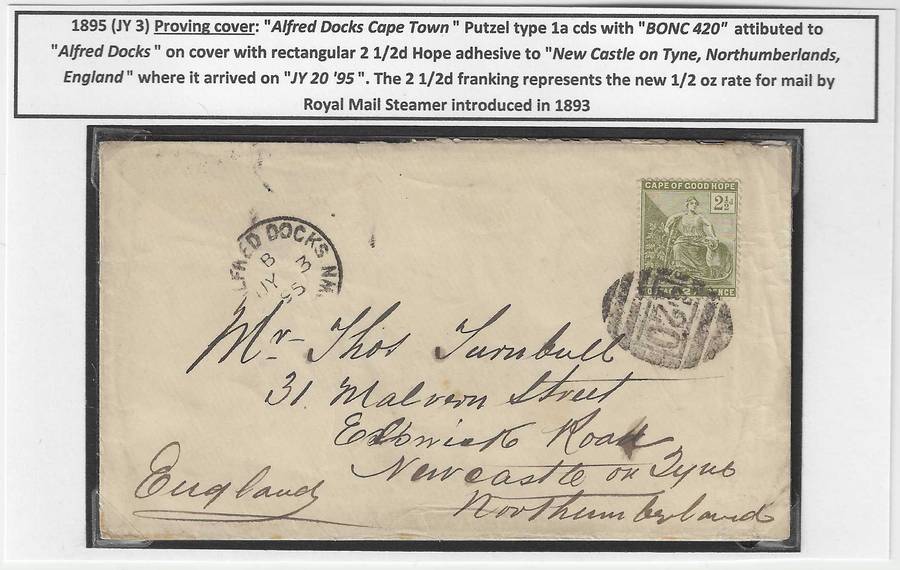 1895 (JY 3) Proving cover: "Alfred Docks Cape Town" Putzel type 1a cds with "BONC 420" attibuted to
"Alfred Docks" on cover with rectangular 2 1/2d Hope adhesive to "New Castle on Tyne, Northumberlands,
England" where it arrived on "JY 20 '95". The 2 1/2d franking represents the new 1/2 oz rate for mail by
Royal Mail Steamer introduced in 1893
CAPE OF GOOD HOPE
2½d
ALFRED DOCKS
B 3
JY
95
420
Mr Thos Turnbull
31 Malvern Street
Elswick Road
Newcastle on Tyne
Northumberland
England